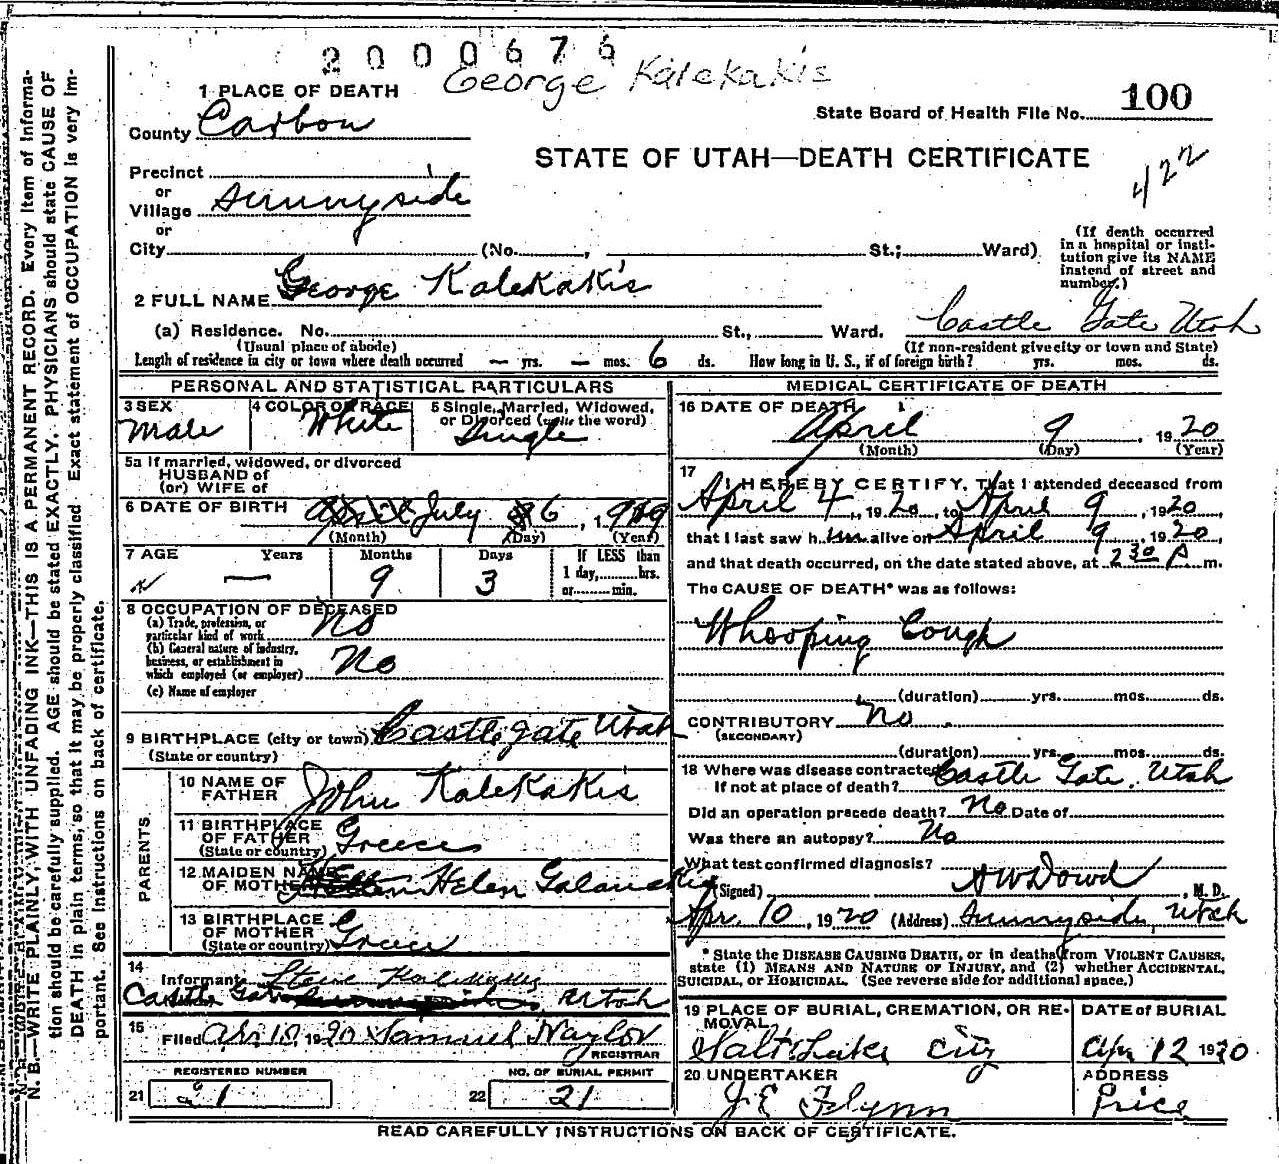 2000676
George Kalekakis
1 PLACE OF DEATH
State Board of Health File No. 100
County Carbon
STATE OF UTAH—DEATH CERTIFICATE
422
Precinct
or
Village Sunnyside
or
City (No. , St.; Ward)
(If death occurred in a hospital or institution give its NAME instead of street and number.)
2 FULL NAME George Kalekakis
(a) Residence. No. St., Ward. Castle Gate Utah
(Usual place of abode) (If non-resident give city or town and State)
Length of residence in city or town where death occurred — yrs. — mos. 6 ds. How long in U. S., if of foreign birth? yrs. mos. ds.
PERSONAL AND STATISTICAL PARTICULARS
3 SEX Male
4 COLOR OR RACE White
5 Single, Married, Widowed, or Divorced (write the word) Single
5a If married, widowed, or divorced
HUSBAND of
(or) WIFE of
6 DATE OF BIRTH July 6, 1919
(Month) (Day) (Year)
7 AGE Years — Months 9 Days 3 If LESS than 1 day, hrs. or min.
8 OCCUPATION OF DECEASED
(a) Trade, profession, or particular kind of work No
(b) General nature of industry, business, or establishment in which employed (or employer) No
(c) Name of employer
9 BIRTHPLACE (city or town) Castlegate Utah
(State or country)
PARENTS
10 NAME OF FATHER John Kalekakis
11 BIRTHPLACE OF FATHER (State or country) Greece
12 MAIDEN NAME OF MOTHER Helen
13 BIRTHPLACE OF MOTHER (State or country) Greece
14
Informant Steve
Castle Gate Utah
15
Filed Apr. 10, 1920 Samuel Naylor
REGISTRAR
REGISTERED NUMBER
21 21
NO. OF BURIAL PERMIT
22 21
MEDICAL CERTIFICATE OF DEATH
16 DATE OF DEATH
April 9, 1920
(Month) (Day) (Year)
17
I HEREBY CERTIFY, That I attended deceased from
April 4, 1920, to April 9, 1920,
that I last saw him alive on April 9, 1920,
and that death occurred, on the date stated above, at 2 30 P m.
The CAUSE OF DEATH* was as follows:
Whooping Cough
(duration) yrs. mos. ds.
CONTRIBUTORY No
(SECONDARY)
(duration) yrs. mos. ds.
18 Where was disease contracted If not at place of death? Castle Gate, Utah
Did an operation precede death? No Date of
Was there an autopsy? No
What test confirmed diagnosis?
(Signed) A W Dowd, M. D.
Apr. 10, 1920 (Address) Sunnyside, Utah
* State the DISEASE CAUSING DEATH, or in deaths from VIOLENT CAUSES, state (1) MEANS AND NATURE OF INJURY, and (2) whether ACCIDENTAL, SUICIDAL, or HOMICIDAL. (See reverse side for additional space.)
19 PLACE OF BURIAL, CREMATION, OR REMOVAL
Salt Lake City
DATE of BURIAL
Apr 12 1920
20 UNDERTAKER
J E Flynn
ADDRESS
Price
READ CAREFULLY INSTRUCTIONS ON BACK OF CERTIFICATE.
N. B.—WRITE PLAINLY, WITH UNFADING INK—THIS IS A PERMANENT RECORD. Every item of information should be carefully supplied. AGE should be stated EXACTLY. PHYSICIANS should state CAUSE OF DEATH in plain terms, so that it may be properly classified. Exact statement of OCCUPATION is very important. See instructions on back of certificate.